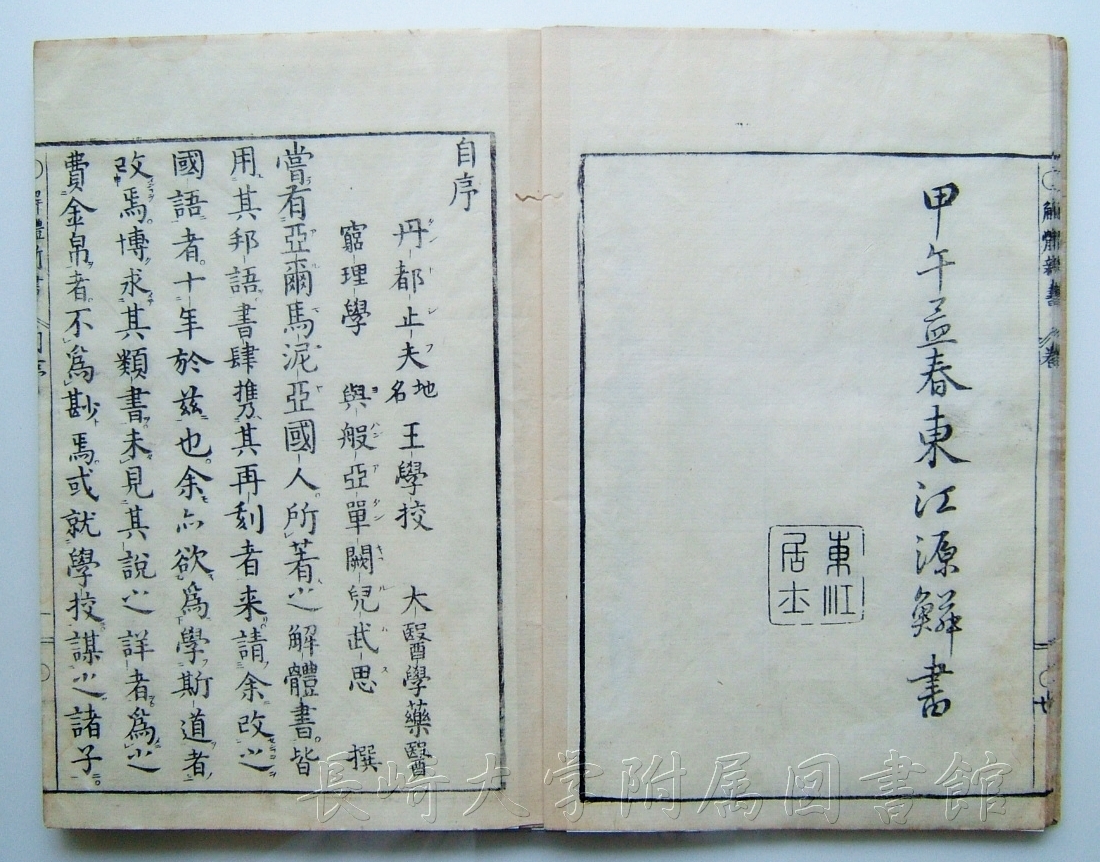 甲午孟春東江源鱗書
東江
居士
自序
丹都止夫地名王學校 大醫學藥醫
窮理學 與般亞單闕兒武思 撰
嘗有亞爾馬泥亞國人所著之解體書皆
用其邦語書肆攜其再刻者来請余改之
國語者十年於茲也余亦欲爲學斯道者
改焉博求其類書未見其說之詳者爲之
費金帛者不爲尠焉或就學校謀之諸子
長崎大学附属図書館